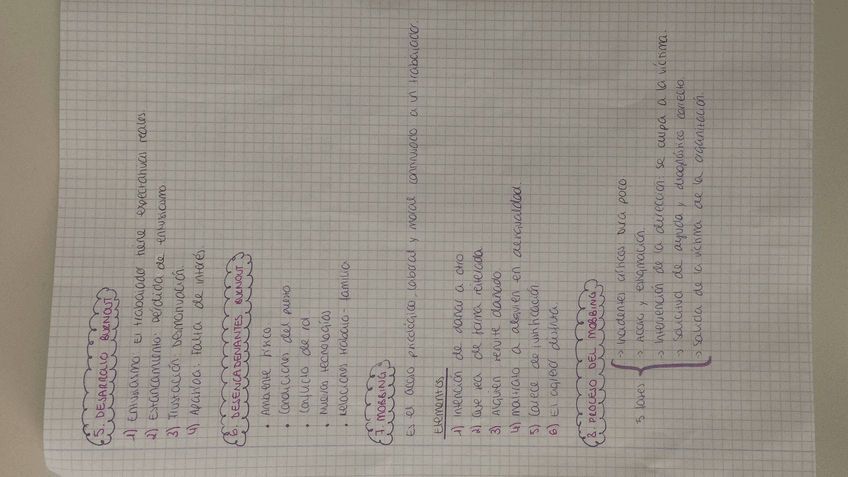 5. DESARROLLO BURNOUT
1) Entusiasmo: El trabajador tiene expectativas reales.
2) Estancamiento: pérdida de entusiasmo.
3) Frustración: Desmotivación
4) Apatía: Falta de interés
6. DESENCADENANTES BURNOUT
• Ambiente físico
• Condiciones del puesto
• Conflicto de rol
• Nuevas tecnologías
• Relaciones trabajo-familia
7. MOBBING
Es el acoso psicológico, laboral y moral continuado a un trabajador.
Elementos
1) Intención de dañar a otro
2) Que sea de forma reiterada
3) Alguien resulte dañado
4) maltrato a alguien en desigualdad.
5) Carece de justificación
6) El agresor disfruta.
8. PROCESO DEL MOBBING
5 fases
→ Incidentes críticos: dura poco
→ Acoso y estigmación
→ Intervención de la dirección: se culpa a la víctima.
→ Solicitud de ayuda y diagnóstico correcto
→ Salida de la víctima de la organización.